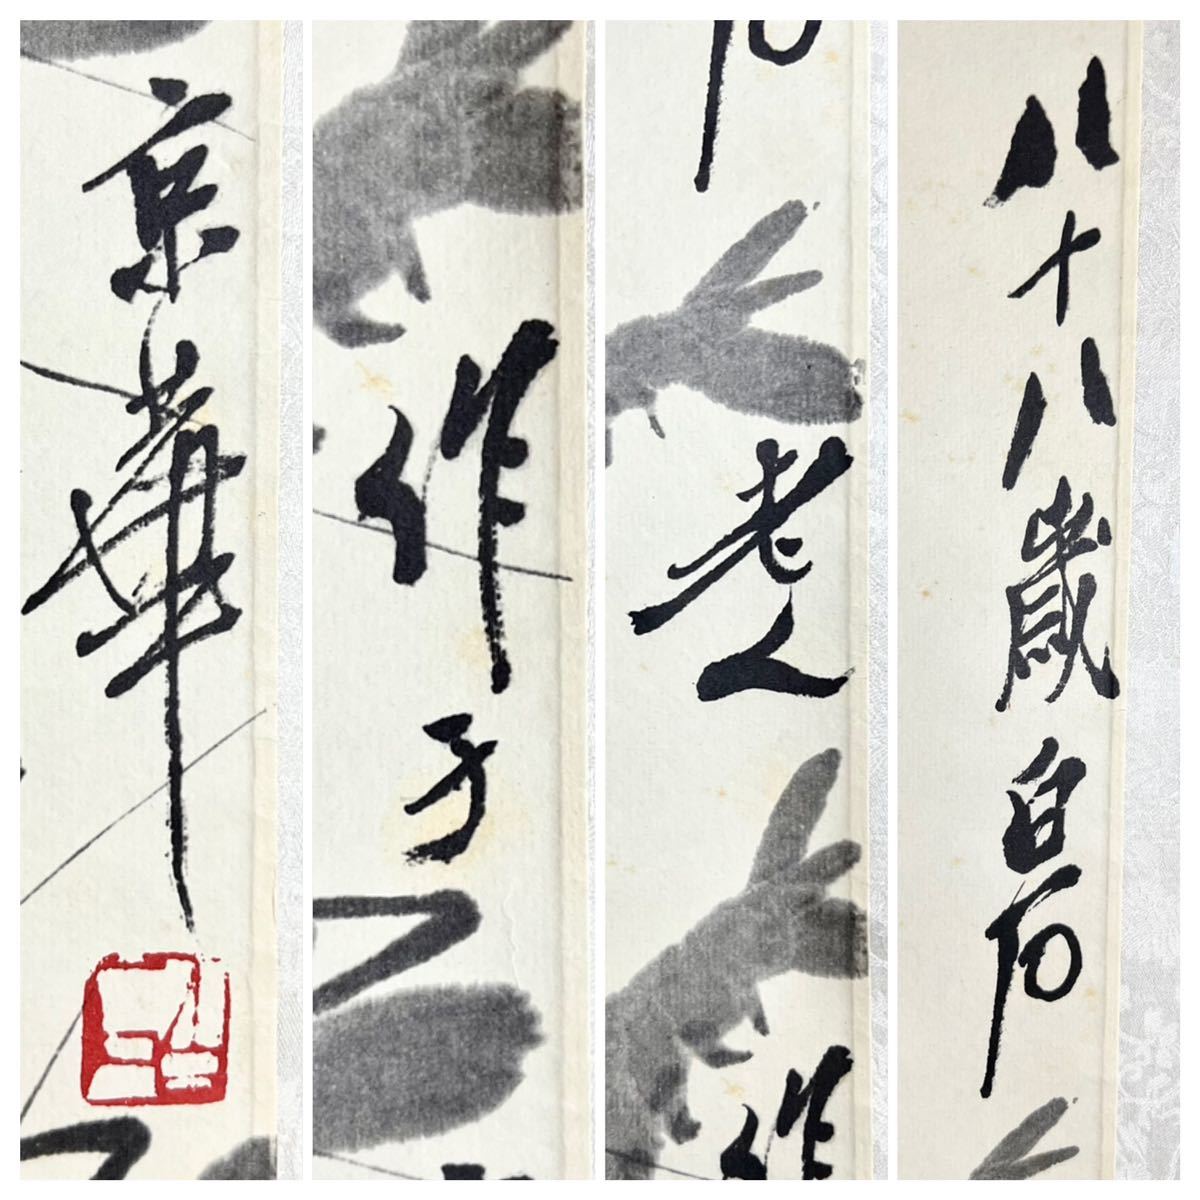 八十八歲白石
老人作
作于
京華